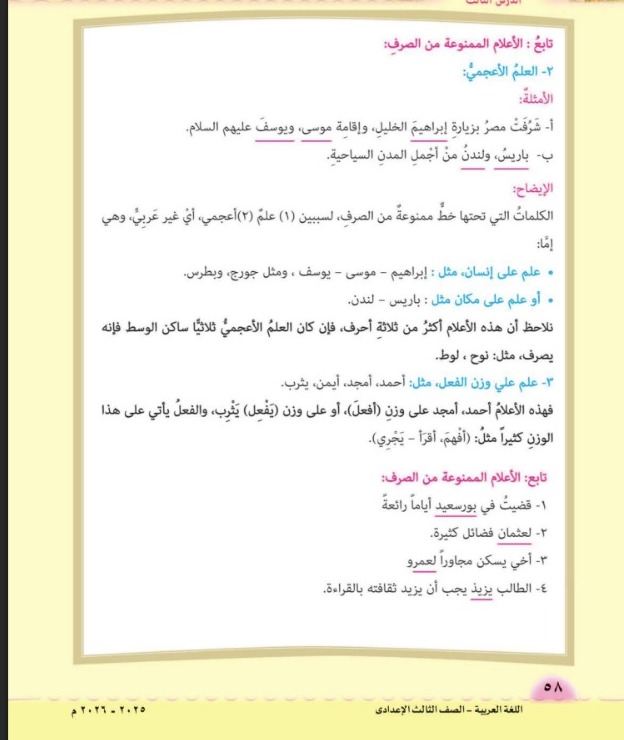 الدرس الثالث
تابعُ : الأعلام الممنوعة من الصرفِ:
٢- العلمُ الأعجميُّ:
الأمثلةُ:
أ- شَرُفَتْ مصرُ بزيارةِ إبراهيمَ الخليلِ، وإقامةِ موسى، ويوسفَ عليهم السلام.
ب- باريسُ، ولندنُ منْ أجْملِ المدنِ السياحيةِ.
الإيضاح:
الكلماتُ التي تحتها خطٌّ ممنوعةٌ من الصرفِ، لسببين (١) علمٌ (٢)أعجمي، أيْ غير عَربِيٍّ، وهي
إمَّا:
• علم على إنسان، مثل : إبراهيم – موسى – يوسف ، ومثل جورج، وبطرس.
• أو علم على مكان مثل : باريس – لندن.
نلاحظ أن هذه الأعلام أكثرُ من ثلاثةِ أحرف، فإن كان العلمُ الأعجميُّ ثلاثيًّا ساكن الوسط فإنه
يصرف، مثل: نوح ، لوط.
٣- علم علي وزن الفعل، مثل: أحمد، أمجد، أيمن، يثرب.
فهذه الأعلامُ أحمد، أمجد على وزنِ (أفعلَ)، أو على وزن (يَفْعِل) يَثْرِب، والفعلُ يأتي على هذا
الوزنِ كثيراً مثلُ: (أفْهمَ، أقرَأ – يَجْرِي).
تابع: الأعلام الممنوعة من الصرف:
١- قضيتُ في بورسعيد أياماً رائعةً
٢- لعثمان فضائل كثيرة.
٣- أخي يسكن مجاوراً لعمرو
٤- الطالب يزيدُ يجب أن يزيد ثقافته بالقراءة.
٥٨
اللغة العربية – الصف الثالث الإعدادى
٢٠٢٥ – ٢٠٢٦ م